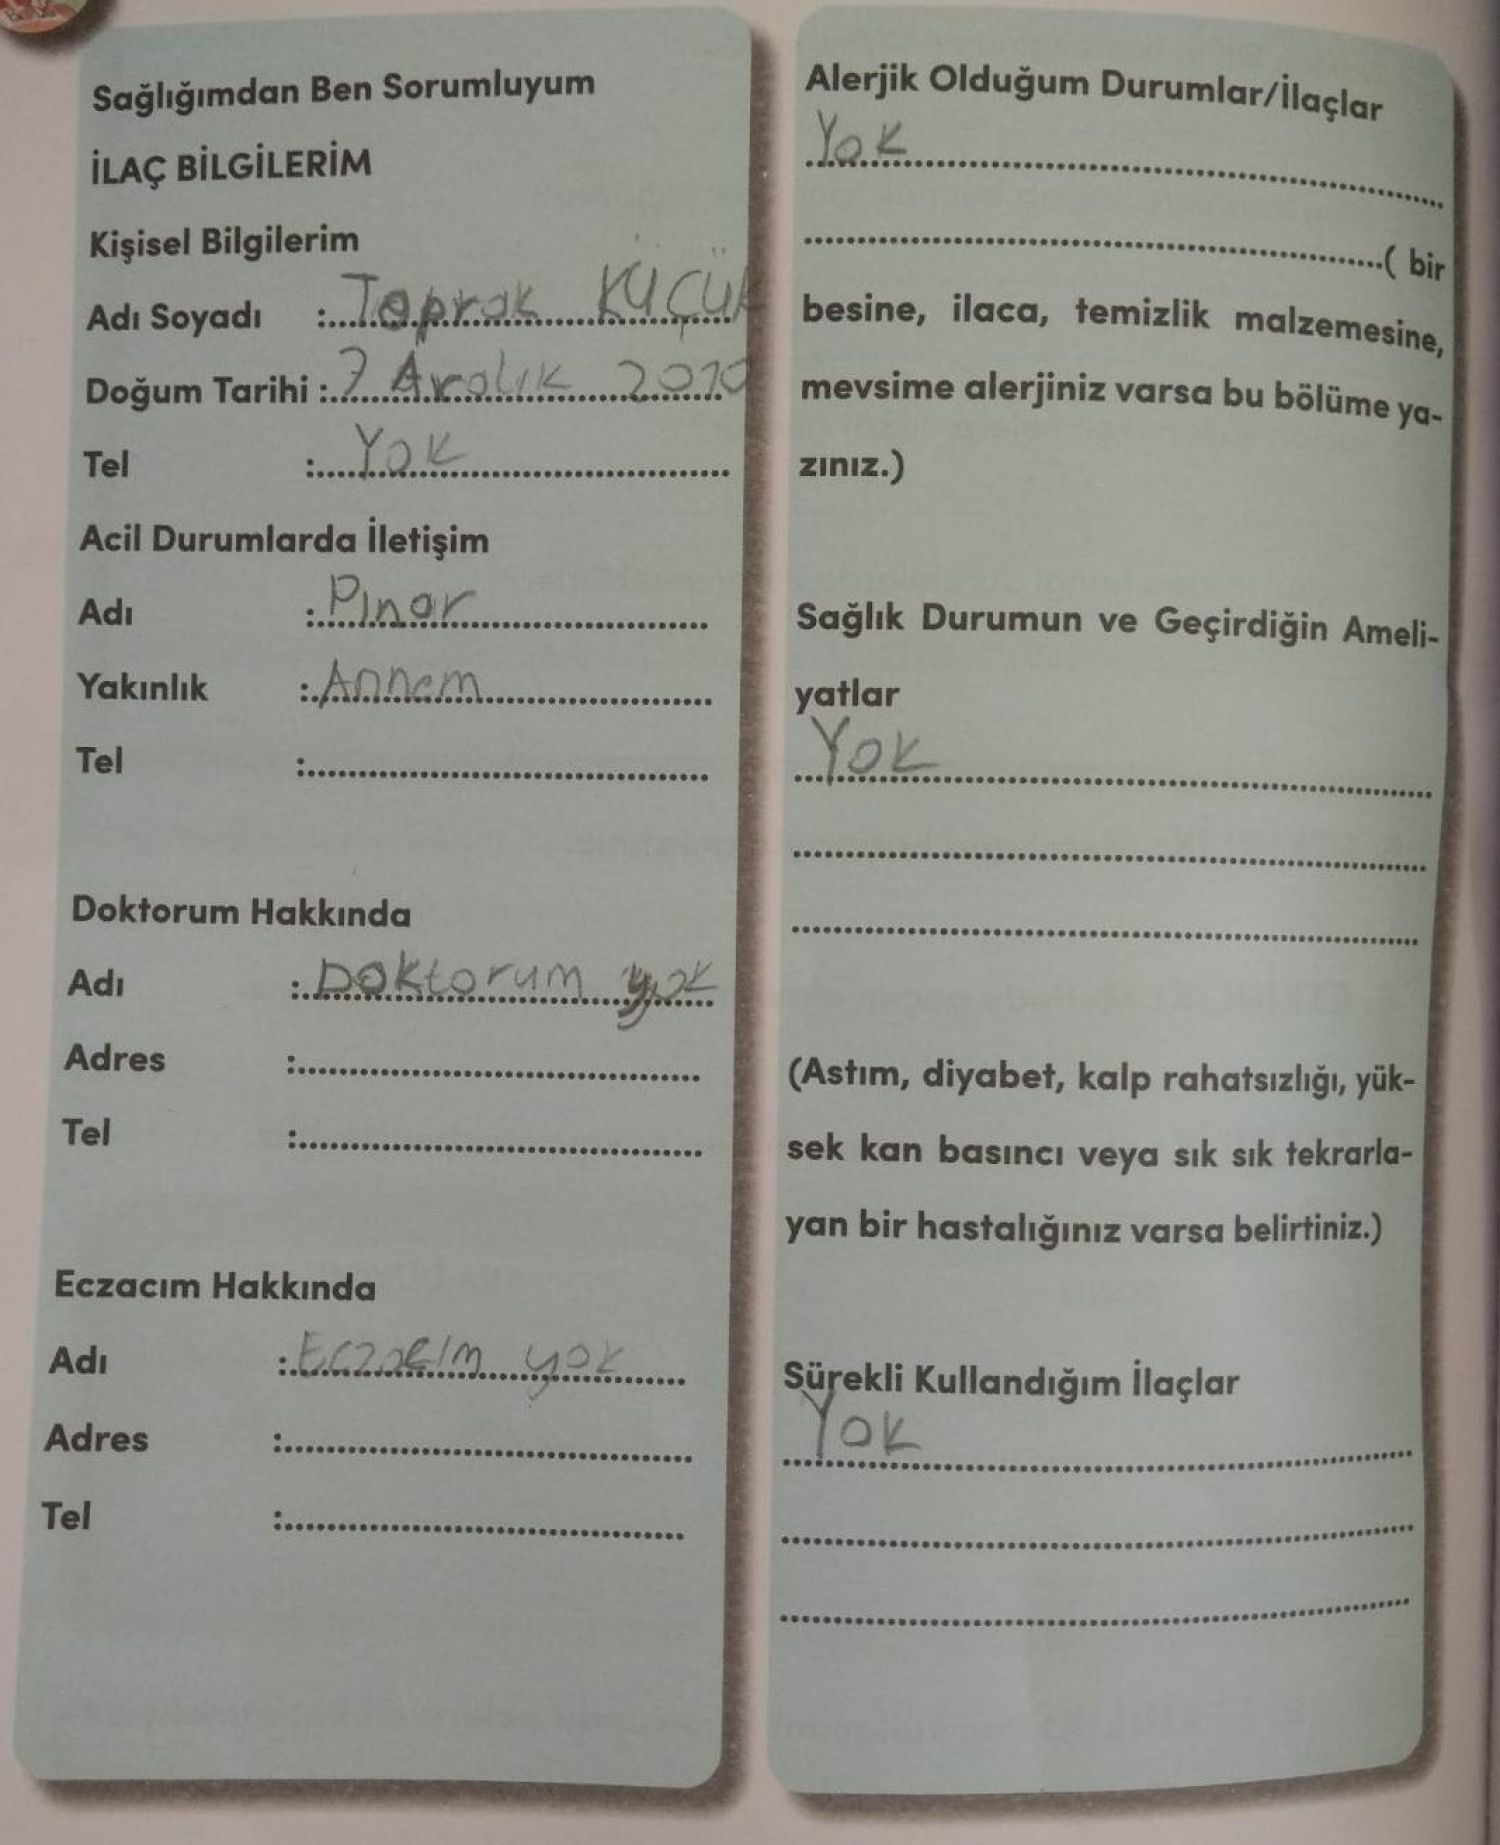 Sağlığımdan Ben Sorumluyum
İLAÇ BİLGİLERİM
Kişisel Bilgilerim
Adı Soyadı :Toprak Küçük
Doğum Tarihi :7 Aralık 2010
Tel :Yok
Acil Durumlarda İletişim
Adı :Pınar
Yakınlık :Annem
Tel :
Doktorum Hakkında
Adı :Doktorum yok
Adres :
Tel :
Eczacım Hakkında
Adı :Eczacım yok
Adres :
Tel :
Alerjik Olduğum Durumlar/İlaçlar
Yok
( bir
besine, ilaca, temizlik malzemesine,
mevsime alerjiniz varsa bu bölüme ya-
zınız.)
Sağlık Durumun ve Geçirdiğin Ameli-
yatlar
Yok
(Astım, diyabet, kalp rahatsızlığı, yük-
sek kan basıncı veya sık sık tekrarla-
yan bir hastalığınız varsa belirtiniz.)
Sürekli Kullandığım İlaçlar
Yok